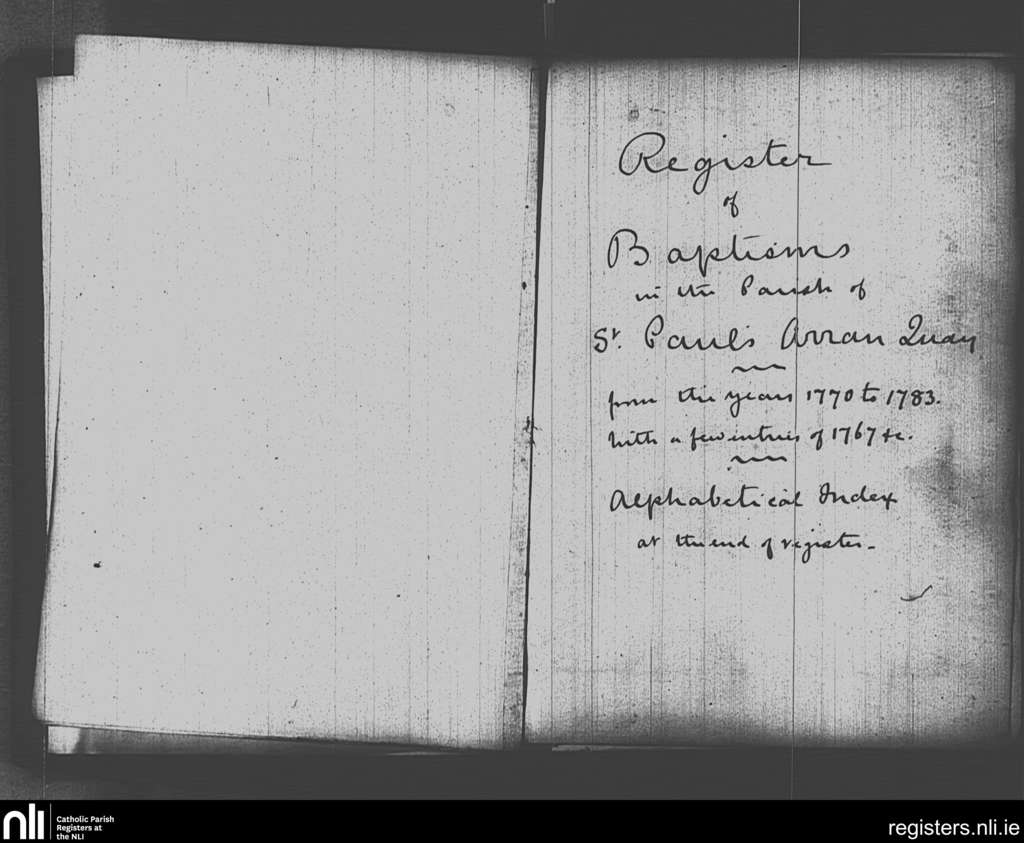 Register
of
Baptisms
in the Parish of
St. Paul's Arran Quay
from the years 1770 to 1783.
With a few entries of 1767 &c.
Alphabetical Index
at the end of register -
nli
Catholic Parish
Registers at
the NLI
registers.nli.ie